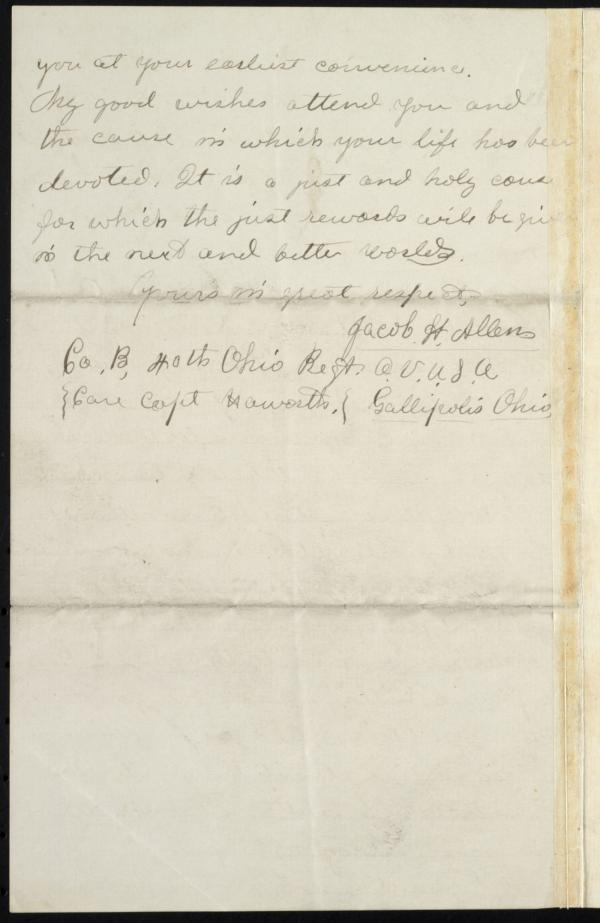 you at your earliest convenienc.
My good wishes attend you and
the cause in which your life has been
devoted. It is a just and holy cause
for which the just rewards will be give
in the next and better world.
Yours in great respect,
Jacob. H. Allen
Co. B, 40th Ohio Regt. O. V. U. S. A
{Care Capt Haworth,{ Gallipolis Ohio